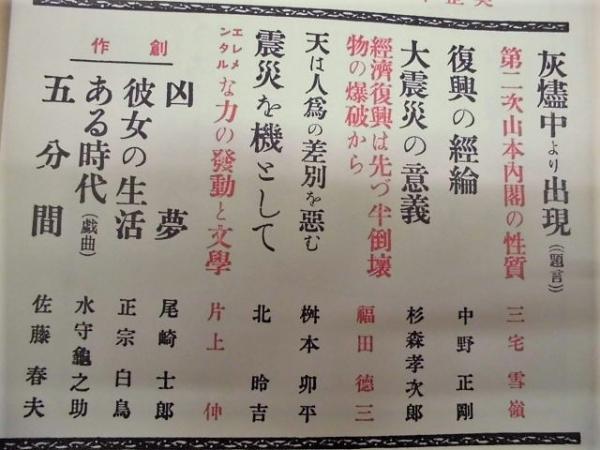 灰燼中より出現(題言)
第二次山本內閣の性質 三宅雪嶺
復興の經綸 中野正剛
大震災の意義 杉森孝次郎
經濟復興は先づ半倒壞物の爆破から 福田德三
天は人爲の差別を惡む 桝本卯平
震災を機として 北昤吉
エレメンタルな力の發動と文學 片上伸
創作
凶夢 尾崎士郎
彼女の生活 正宗白鳥
ある時代(戲曲) 水守龜之助
五分間 佐藤春夫